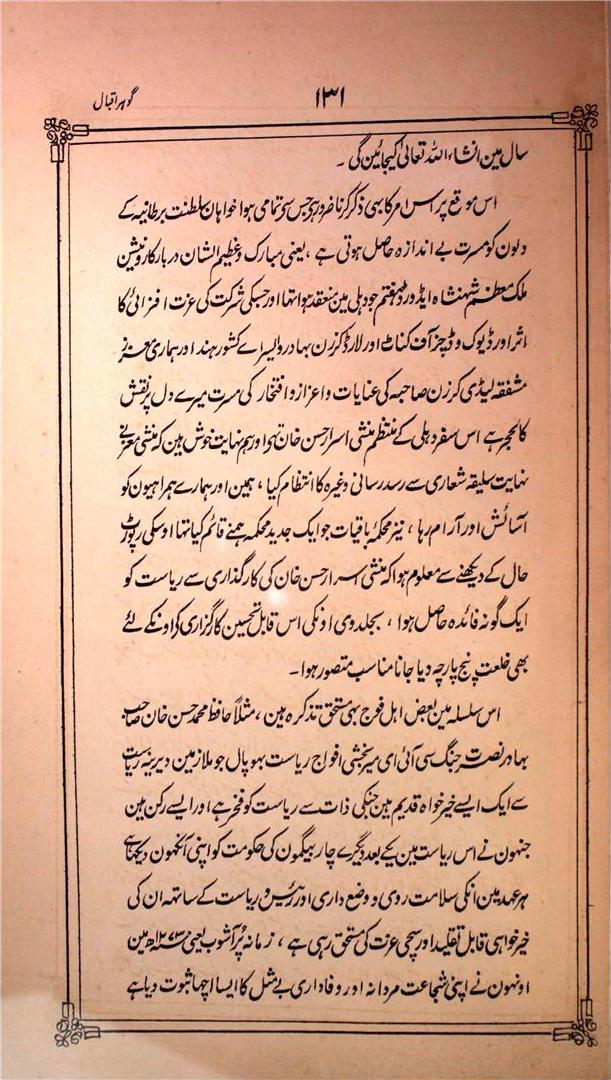 گوہر اقبال
۱۳۱
سال مین انشاء اللہ تعالیٰ کیجائین گی ۔
اس موقع پر اس امر کا بھی ذکر کرنا ضرور ہے جس سے تمامی ہوا خواہان سلطنت برطانیہ کے
دلون کو مسرت بے اندازہ حاصل ہوتی ہے ، یعنی مبارک و عظیم الشان دربار کارونیشن
ملک معظم شہنشاہ ایڈورڈ ہفتم جو دہلی مین منعقد ہوا تھا اور جسکی شرکت کی عزت افزائی کا
اثر اور ڈیوک و ڈچز آف کناٹ اور لارڈ کرزن بہادر ویسرائے کشور ہند اور ہماری معزز
مشفقہ لیڈی کرزن صاحبہ کی عنایات و اعزاز و افتخار کی مسرت میرے دل پر نقش
کالحجر ہے اس سفر دہلی کے منتظم منشی اسرار حسن خان تھے اور ہم نہایت خوش ہین کہ منشی معزی نے
نہایت سلیقہ شعاری سے رسد رسانی وغیرہ کا انتظام کیا ، ہمین اور ہمارے ہمراہیون کو
آسائش اور آرام رہا ، نیز محکمۂ باقیات جو ایک جدید محکمہ ہمنے قائم کیا تھا اوسکی رپورٹ
حال کے دیکھنے سے معلوم ہوا کہ منشی اسرار حسن خان کی کارگذاری سے ریاست کو
ایک گونہ فائدہ حاصل ہوا ، بجلدوی اونکی اس قابل تحسین کارگزاری کر اونکے لئے
بھی خلعت پنج پارچہ دیا جانا مناسب متصور ہوا ۔
اس سلسلہ مین بعض اہل فوج بھی مستحق تذکرہ ہین ، مثلاً حافظ محمد حسن خان صاحب
بہادر نصرت جنگ سی آئی ای میر بخشی افواج ریاست بھوپال جو ملازمین دیرینہ ریاست
سے ایک ایسے خیر خواہ قدیم ہین جنکی ذات سے ریاست کو فخر ہے اور ایسے رکن ہین
جنہون نے اس ریاست مین یکے بعد دیگرے چار بیگمون کی حکومت کو اپنی آنکھون دیکھا ہے
ہر عہد مین انکی سلامت روی و وضع داری اور رئیس و ریاست کے ساتھ ان کی
خیر خواہی قابل تقلید اور سچی عزت کی مستحق رہی ہے ، زمانہ پر آشوب یعنی ۱۲۷۳ھ مین
اونہون نے اپنی شجاعت مردانہ اور وفاداری بے مثل کا ایسا اچھا ثبوت دیا ہے